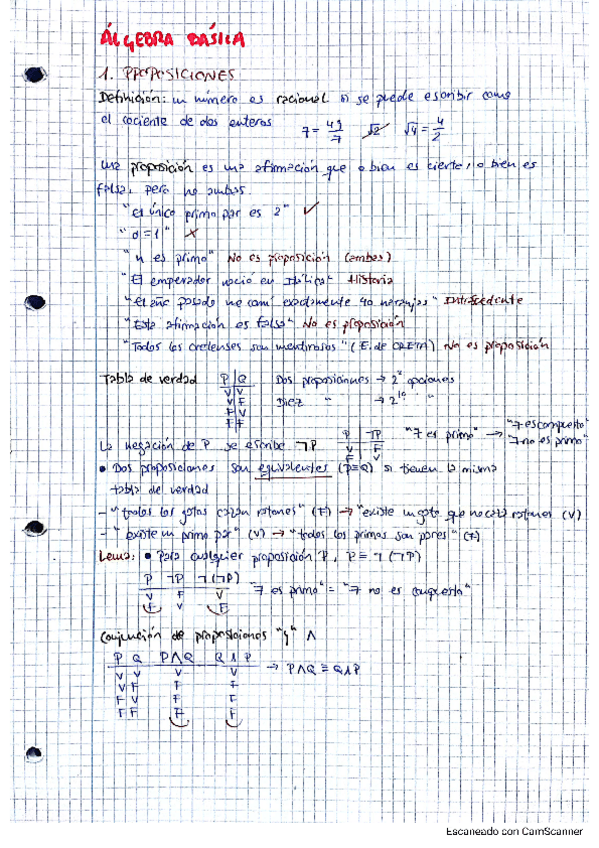 ÁLGEBRA BÁSICA
1. PROPOSICIONES
Definición: un número es racional si se puede escribir como
el cociente de dos enteros 7 = 49/7 √2 √4 = 4/2
Una proposición es una afirmación que o bien es cierta, o bien es
falsa, pero no ambas.
"el único primo par es 2" ✓
"0=1" ✗
"n es primo" No es proposición (ambas)
"El emperador nació en Itálica" Historia
"El año pasado me comí exactamente 40 naranjas" Intrascendente
"Esta afirmación es falsa" No es proposición
"Todos los cretenses son mentirosos" (E. de CRETA) No es proposición
Tabla de verdad P Q Dos proposiciones → 2² opciones
V V
V F Diez " → 2¹⁰ "
F V
F F
La negación de P se escribe ¬P P ¬P "7 es primo" → "7 es compuesto"
V F "7 no es primo"
F V
• Dos proposiciones son equivalentes (P≡Q) si tienen la misma
tabla de verdad
- "todos los gatos cazan ratones" (F) → "existe un gato que no caza ratones" (V)
- "existe un primo par" (V) → "todos los primos son pares" (F)
Lema: • Para cualquier proposición P, P ≡ ¬(¬P)
P ¬P ¬(¬P) "7 es primo" = "7 no es compuesto"
V F V
F V F
Conjunción de proposiciones "y" ∧
P Q P∧Q Q∧P → P∧Q ≡ Q∧P
V V V V
V F F F
F V F F
F F F F
Escaneado con CamScanner